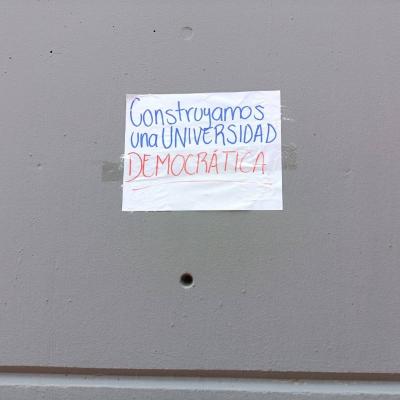 Construyamos
una UNIVERSIDAD
DEMOCRÁTICA